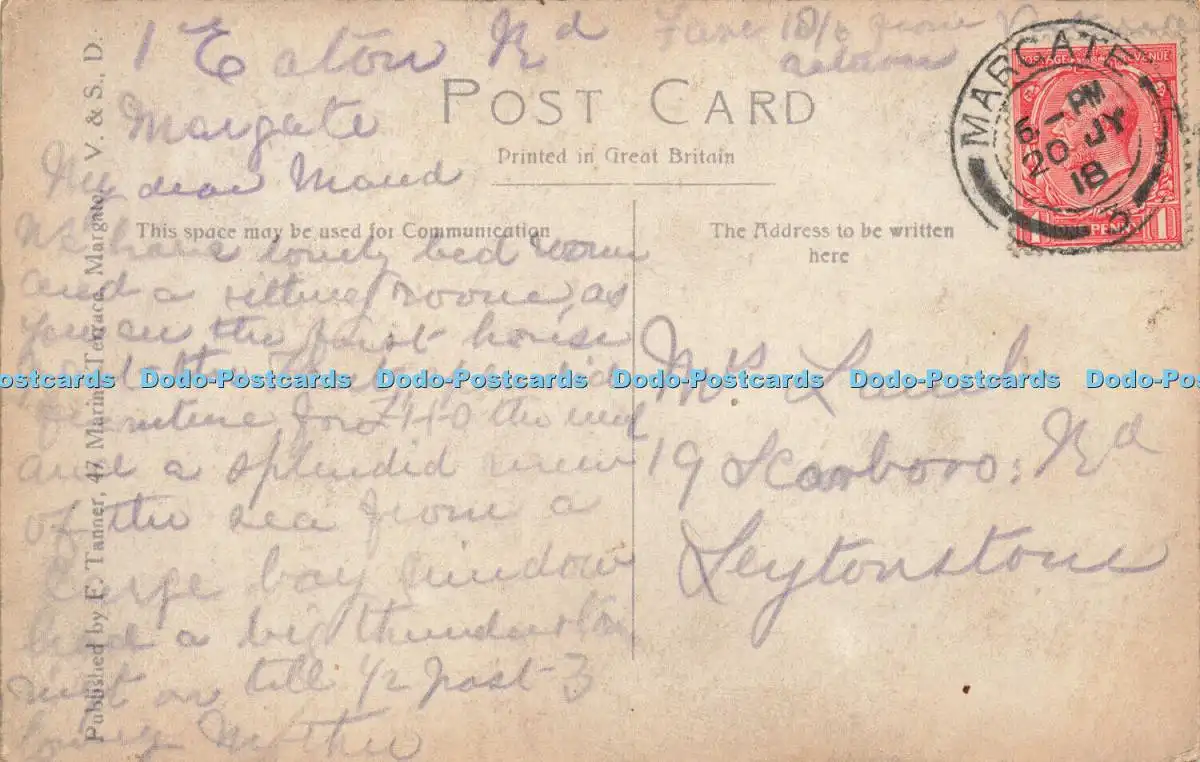 1 Eaton Rd
Margate
My dear Maud
We have lovely bed room
and a sitting room, as
you see the first house
furniture for £1-1-0 the
and a splendid view
of the sea from a
large bay window
had a big thunderstorm
last on till 1/2 past 3
loving Mother
Fare 18/6 from
return
POST CARD
Printed in Great Britain
This space may be used for Communication
The Address to be written
here
MARGATE
6 - PM
20 JY
18
POSTAGE REVENUE
1 PENNY 1
Mrs
19 Scarboro: Rd
Leytonstone
Published by F. Tanner, 47 Marine Terrace, Margate, V. & S., D.
Dodo-Postcards Dodo-Postcards Dodo-Postcards Dodo-Postcards Dodo-Postcards Dodo-Postcards